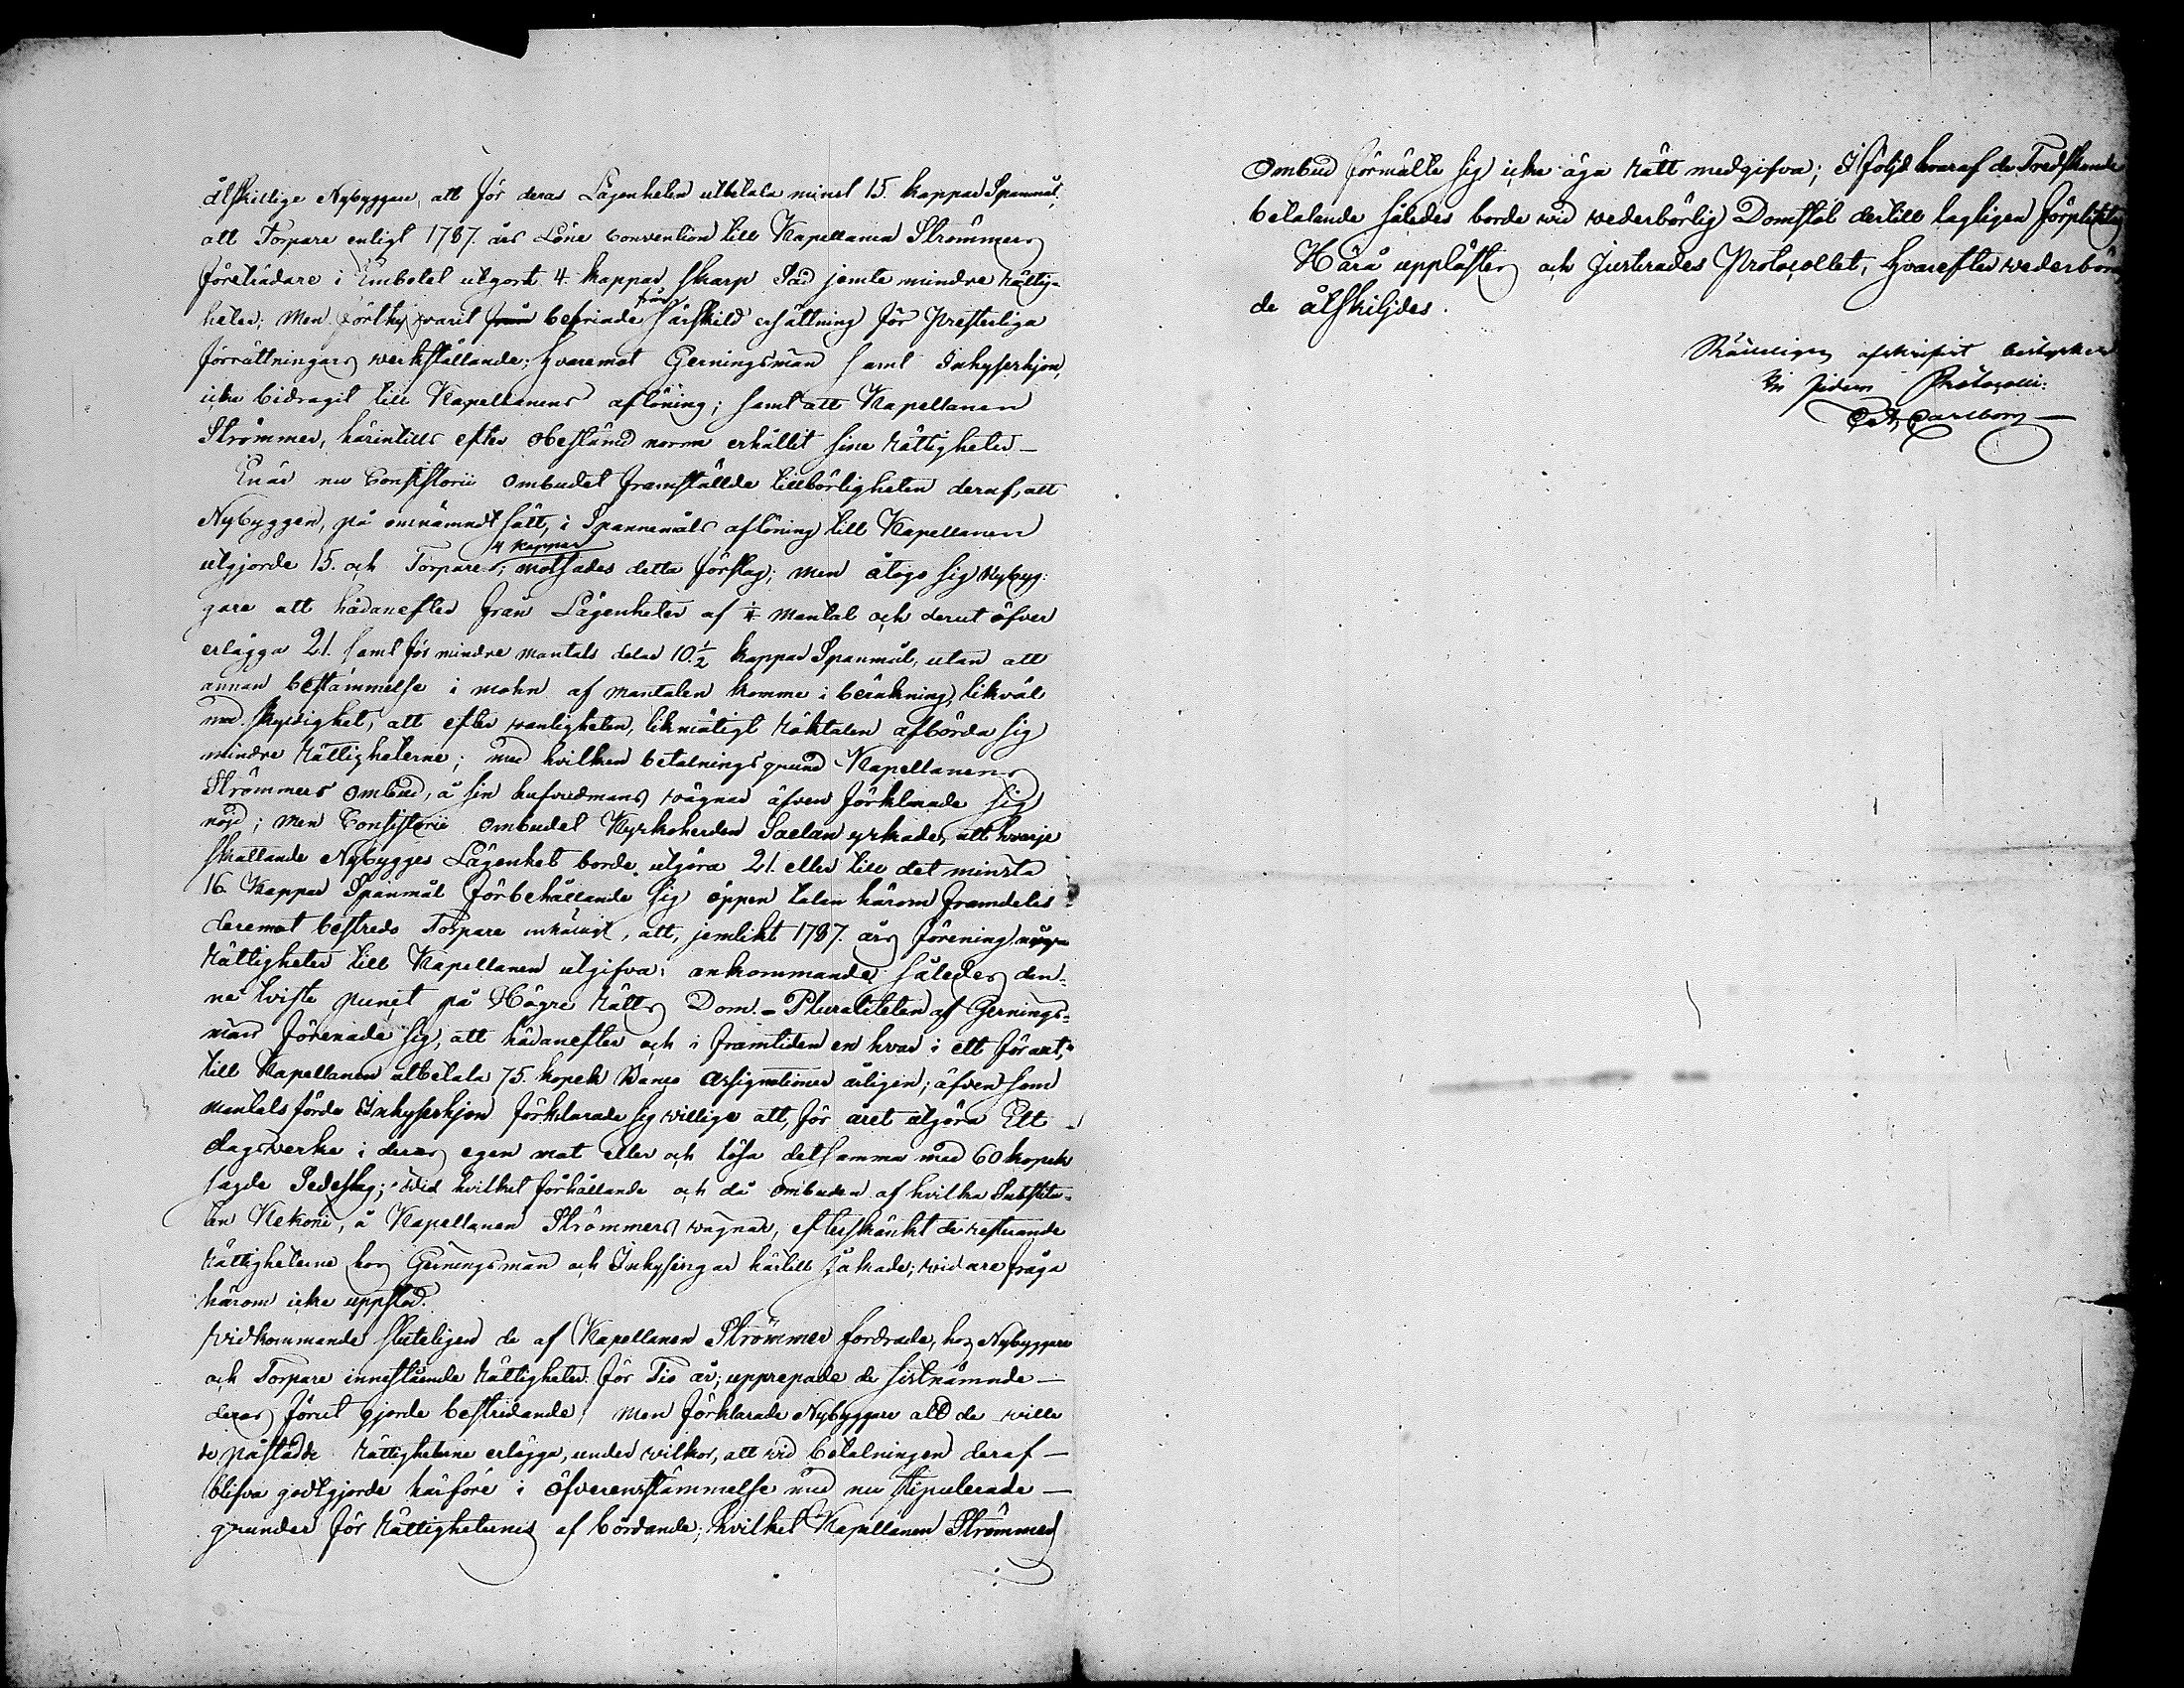 åtskillige Nybyggare, att för deras Lägenheten utbetala minst 15. kappar Spanmål.
att Torpare enligt 1787. års Löne Convention till Kapellanen Strömmers
företrädare i Embetet utgort 4. kappar skarp Säd jemte mindre rättig-
heter; Men förthy varit från befriade från särskild ersättning för Presterliga
förrättningars verkställande; hvaremot Gerningsmän samt Inhyseshjon,
icke bidragit till Kapellanens aflöning; samt att Kapellanen
Strömmer, härintills efter obestämd norm erhållit sine rättigheter —
Enär nu Consistorii Ombudet framställde tillbörligheten deraf, att
Nybyggen, på omnämndt sätt, i Spannemåls aflöning till Kapellanen
utgjorde 15. och Torpare 4 kappar; motsades detta förslag; men åtogo sig Nybyg-
gare att hädanefter från Lägenheter af 1/4 Mantal och derut öfver
erlägga 21. samt för mindre mantals delar 10 1/2 kappar Spanmål, utan att
annan bestämmelse i mohn af mantalen komme i beräkning, likväl
med skyldighet, att efter vanligheten, likmätigt röktalen afbörda sig
mindre rättigheterne; med hvilken betalnings grund Kapellanens
Strömmers Ombud, å sin hufvudmans vägnar äfven förklarade sig
nöjd; Men Consistorii Ombudet Kyrkoherden Saelan yrkade, att hvarje
skattlande Nybygges Lägenhet borde utgöra 21. eller till det minsta
16 Kappar Spanmål förbehållande sig öppen talan härom framdeles
deremot bestredo Torpare enhälligt, att, jemlikt 1787. års förening några
rättigheter till Kapellanen utgifva; ankommande således den-
ne tviste punct på Högre Rätts Dom. – Pluraliteten af Gernings-
män förenade sig, att hädanefter och i framtiden en hvar i ett för allt,
till Kapellanen utbetala 75. kopek Banco Assignationer årligen; äfvensom
mantalsförde Inhyseshjon förklarade sig villige att, för året utgöra Ett
dagsverke i deras egen mat eller och lösa detsamma med 60 kopek
sagde Sedeslag; Vid hvilket förhållande och då Ombuden af hvilka Substitu-
ten Kekoni, å Kapellanen Strömmers vägnar, efterskänkt de resterande
rättigheterne hos Gerningsmän och Inhysingar härtill jakade; vidare fråga
härom icke uppstod.
Vidkommande sluteligen de af Kapellanen Strömmer fordrade, hos Nybyggare
och Torpare innestående rättigheter för Tio år; upprepade de sistnämnde —
deras förut gjorde bestridande; Men förklarade Nybyggare att de ville
de påstådde rättigheterne erlägga, under vilkor, att vid betalningen deraf —
blifva godtgjorde härföre i öfverensstämmelse med nu stipulerade —
grunder för rättigheternes afbördande; hvilket Kapellanen Strömmers
Ombud förmälte sig icke äga rätt medgifva; I följd hvaraf de Tredskande
betalande således borde vid vederbörlig Domstol dertill lagligen förpliktas
Härå upplästes och Justerades Protocollet, hvarefter vederböran-
de åtskiljdes.
afskrifvit bestyrker
Protocolli:
Carlborg —